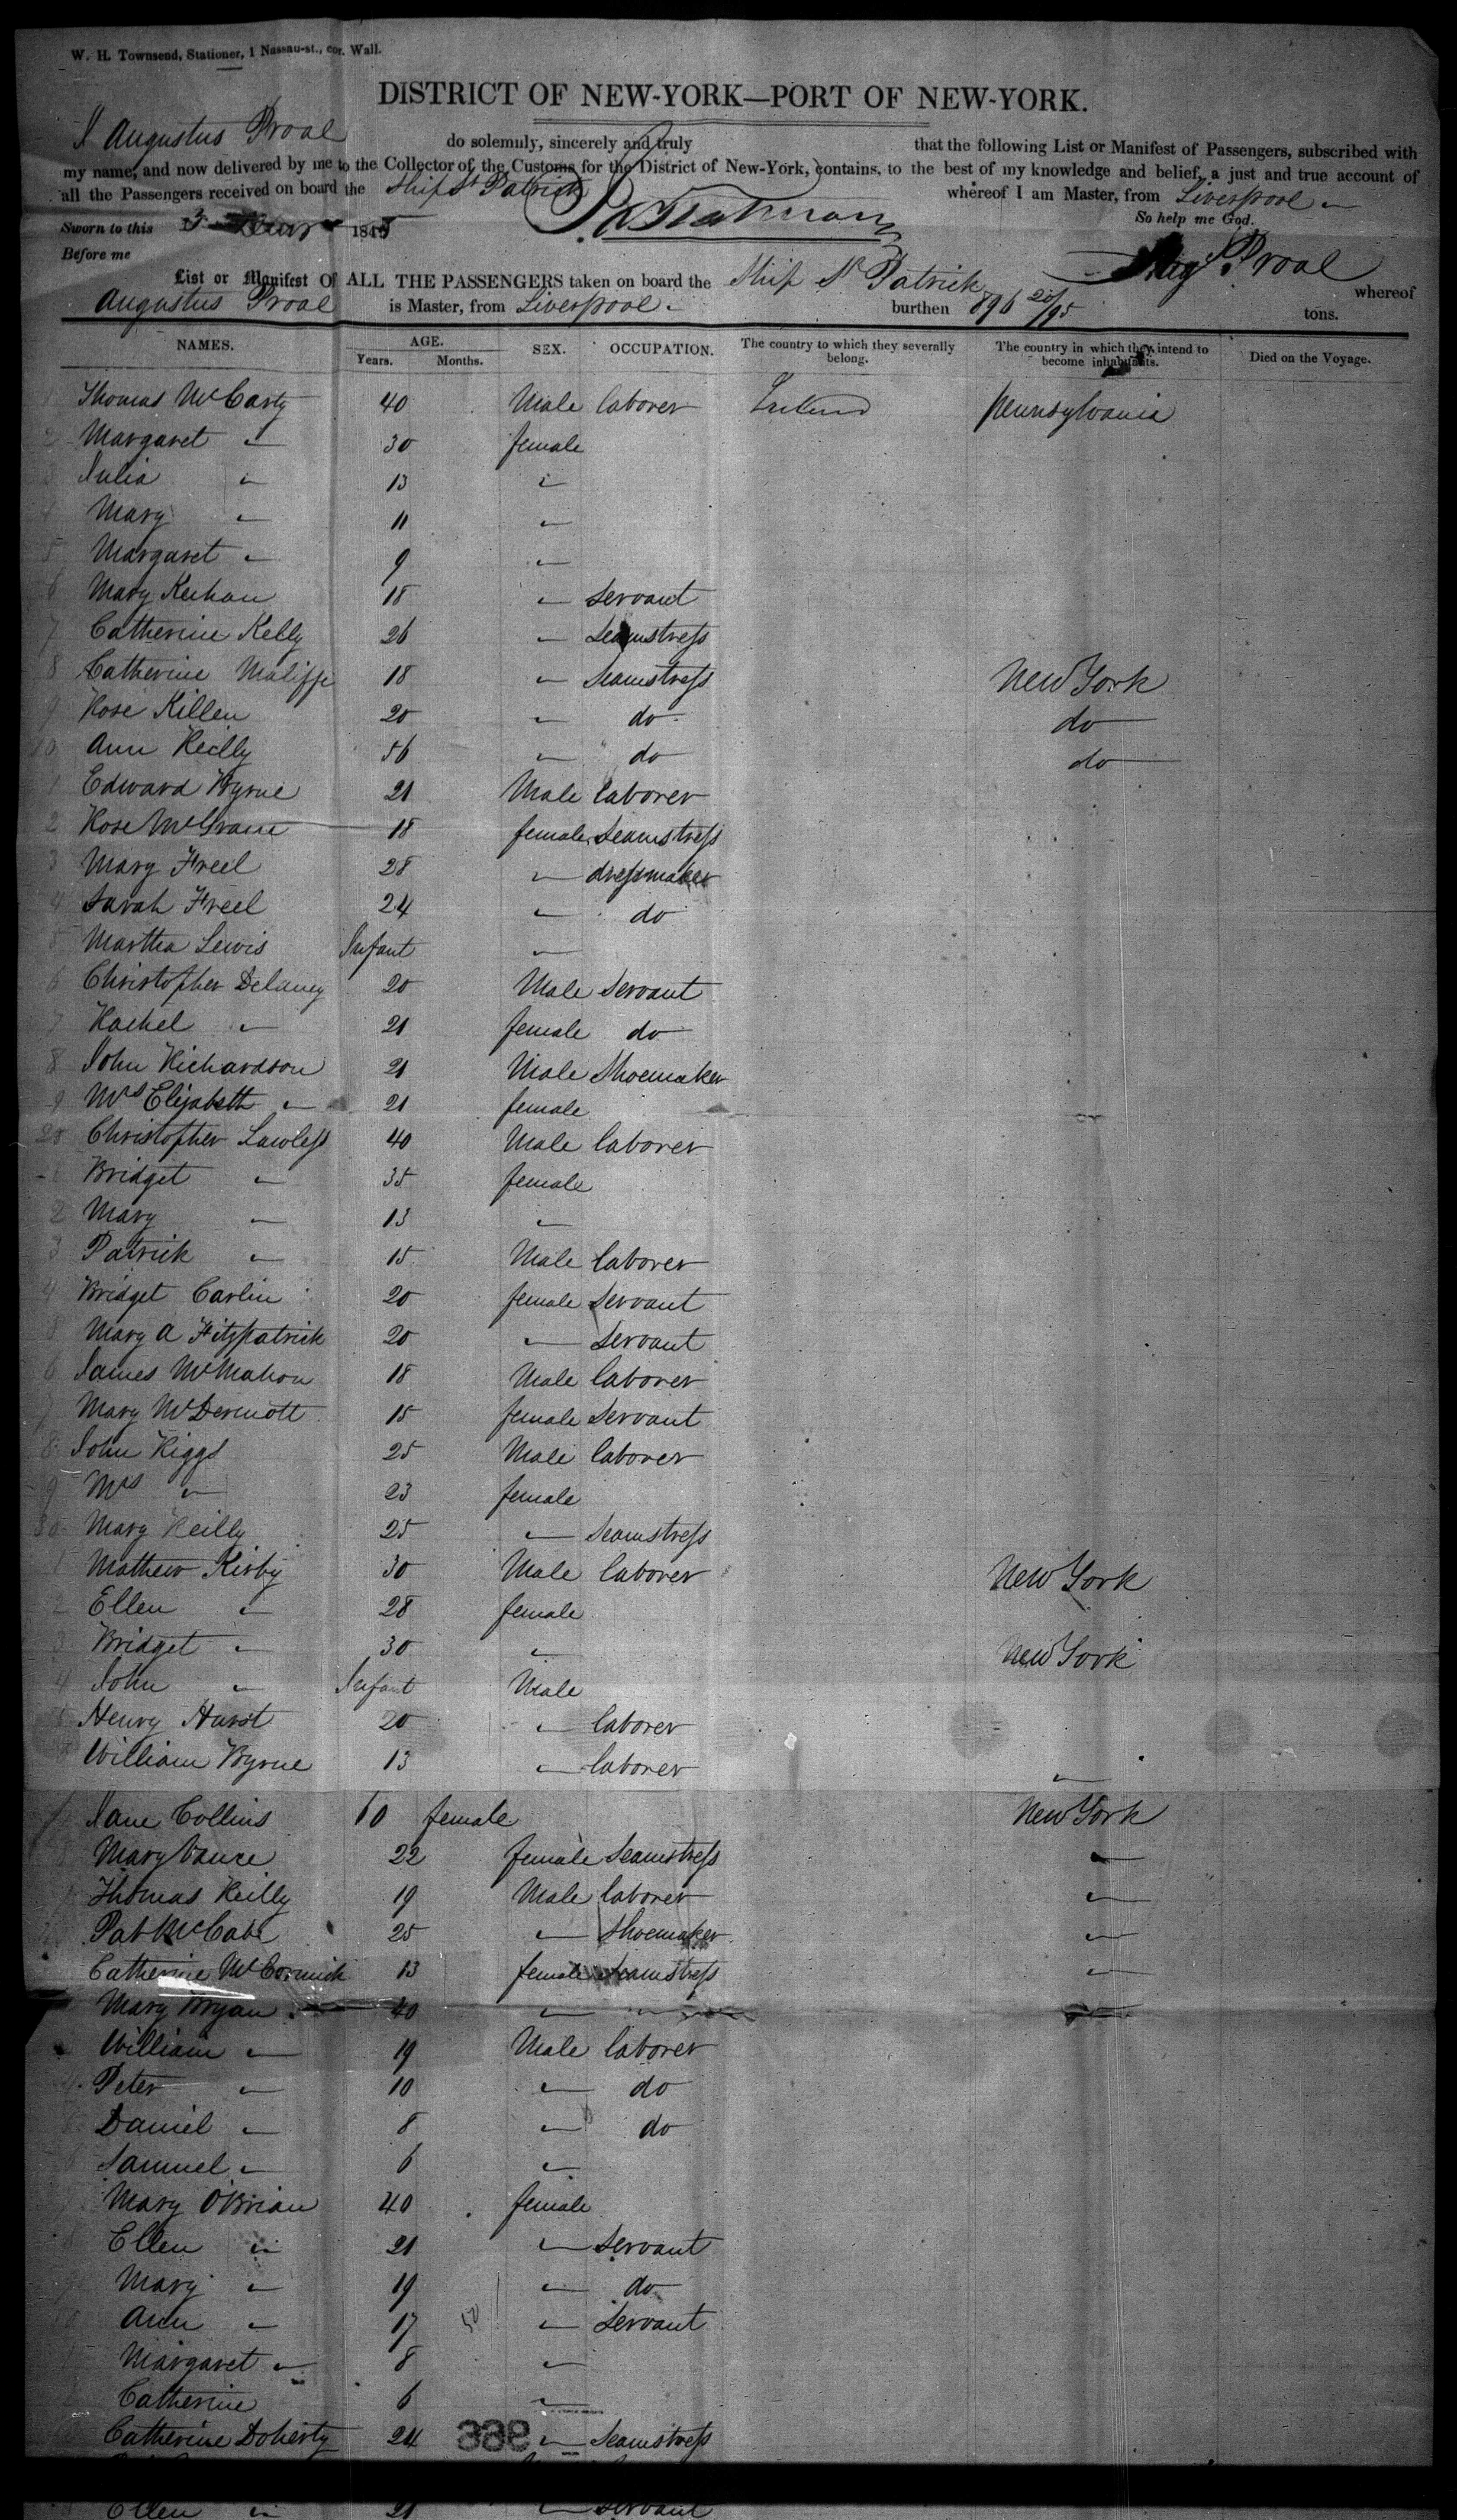 W. H. Townsend, Stationer, 1 Nassau-st., cor. Wall.
DISTRICT OF NEW-YORK—PORT OF NEW-YORK.
I Augustus Proal do solemnly, sincerely and truly that the following List or Manifest of Passengers, subscribed with
my name, and now delivered by me to the Collector of the Customs for the District of New-York, contains, to the best of my knowledge and belief, a just and true account of
all the Passengers received on board the Ship St Patrick whereof I am Master, from Liverpool
Sworn to this 3 184 So help me God.
Before me Augs Proal
List or Manifest Of ALL THE PASSENGERS taken on board the Ship St Patrick whereof
Augustus Proal is Master, from Liverpool burthen 896 20/95 tons.
NAMES. AGE. SEX. OCCUPATION. The country to which they severally belong. The country in which they intend to become inhabitants. Died on the Voyage.
Years. Months.
1 Thomas McCarty 40 Male laborer Ireland Pennsylvania
2 Margaret " 30 female
3 Julia " 13 "
4 Mary " 11 "
5 Margaret " 9 "
6 Mary Keehan 18 " Servant
7 Catherine Kelly 26 " Seamstress
8 Catherine 18 " Seamstress New York
9 Rose Killen 20 " do do
10 Ann Reilly 56 " do do
1 Edward Byrne 21 Male laborer
2 Rose McGrane 18 female Seamstress
3 Mary Freel 28 " dressmaker
4 Sarah Freel 24 " do
5 Martha Lewis Infant "
6 Christopher Delaney 20 Male Servant
7 Rachel " 21 female do
8 John Richardson 21 Male Shoemaker
9 Mrs Elizabeth " 21 female
20 Christopher Lawless 40 Male laborer
1 Bridget " 35 female
2 Mary " 13 "
3 Patrick " 15 Male laborer
4 Bridget Carlin 20 female Servant
5 Mary A Fitzpatrick 20 " Servant
6 James McMahon 18 Male laborer
7 Mary McDermott 15 female Servant
8 John Riggs 25 Male laborer
9 Mrs " 23 female
30 Mary Reilly 25 " Seamstress
1 Mathew Kirby 30 Male laborer New York
2 Ellen " 28 female
3 Bridget " 30 " New York
4 John " Infant Male
Henry Hurst 20 " laborer
William Byrne 13 " laborer "
Jane Collins 60 female New York
Mary Vance 22 female Seamstress "
Thomas Reilly 19 Male laborer "
Pat McCabe 25 " Shoemaker "
Catherine McCormick 13 female Seamstress "
Mary Bryan 40 " "
William " 19 Male laborer
4 Peter " 10 " do
Daniel " 8 " do
Samuel " 6 "
Mary OBrian 40 female
Ellen " 21 " Servant
Mary " 19 " do
Ann " 17 " Servant
Margaret " 8 "
Catherine 6 "
Catherine Doherty 24 " Seamstress
Ellen " 21 " Servant